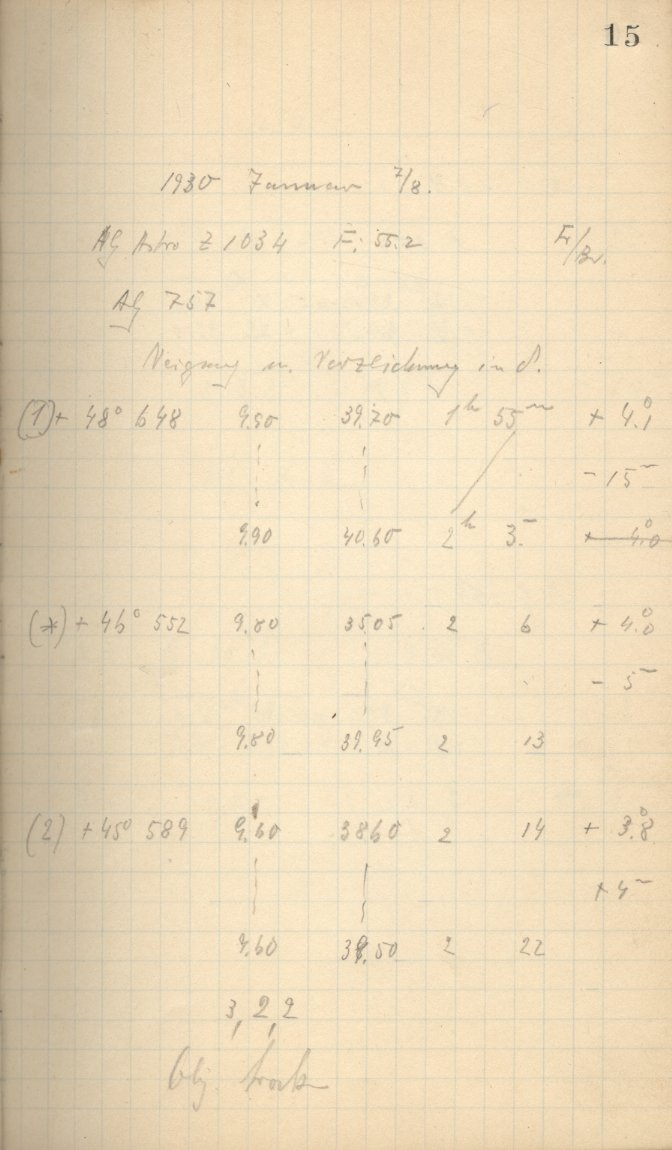 15
1930 Januar 7/8.
AG Astro Z 1034 F: 55.2 Fr/Br.
AG 757
Neigung u. Verzeichnung in δ.
(1) + 48° 648 9.90 39.70 1h 55m + 4.°1
- 15m
9.90 40.60 2h 3m + 4.°0
(*) + 46° 552 9.80 3505 2 6 + 4.°0
- 5m
9.80 39.95 2 13
(2) + 45° 589 9.60 3860 2 14 + 3.°8
+ 4m
9.60 39.50 2 22
3, 2, 2
Obj.